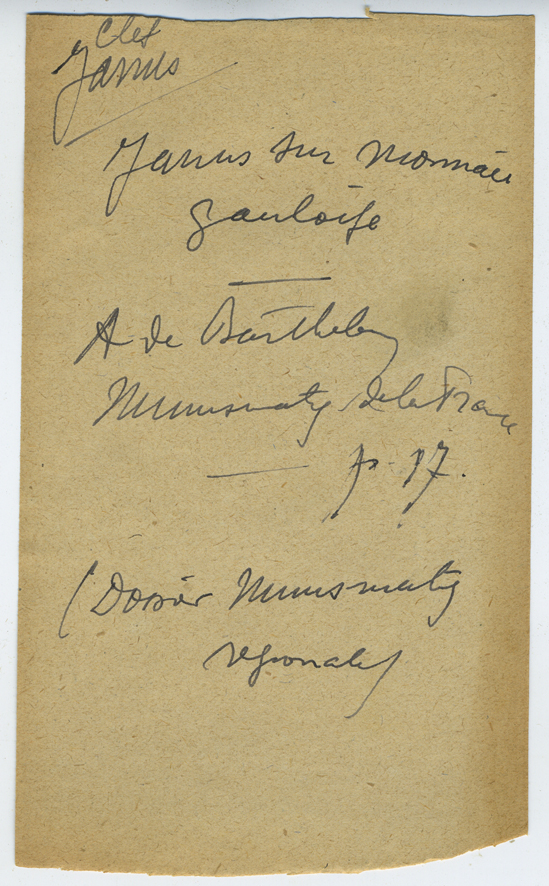 Clef
Janus
Janus sur monnaie
gauloise
A de Barthelemy
Numismatiq de la France
p. 17.
(Dossier Numismatiq
régionale)